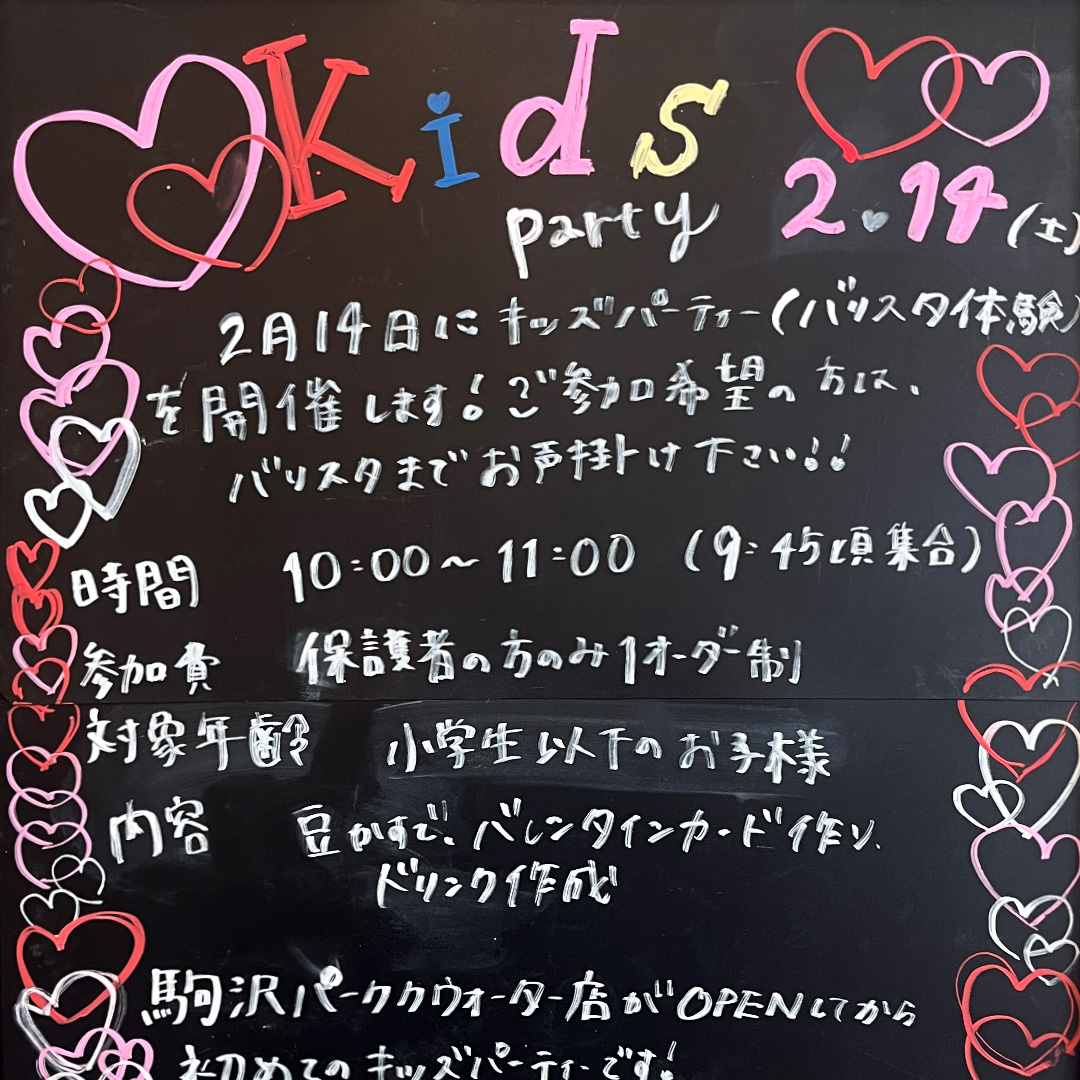 Kids
party 2.14(土)
2月14日に キッズパーティー(バリスタ体験)
を開催します!ご参加希望の方は、
バリスタまでお声掛け下さい!!
時間 10:00~11:00 (9:45頃集合)
参加費 保護者の方のみ1オーダー制
対象年齢 小学生以下のお子様
内容 豆かすで、バレンタインカード作り、
ドリンク作成
駒沢パーククウォーター店がOPENしてから
初めてのキッズパーティーです!